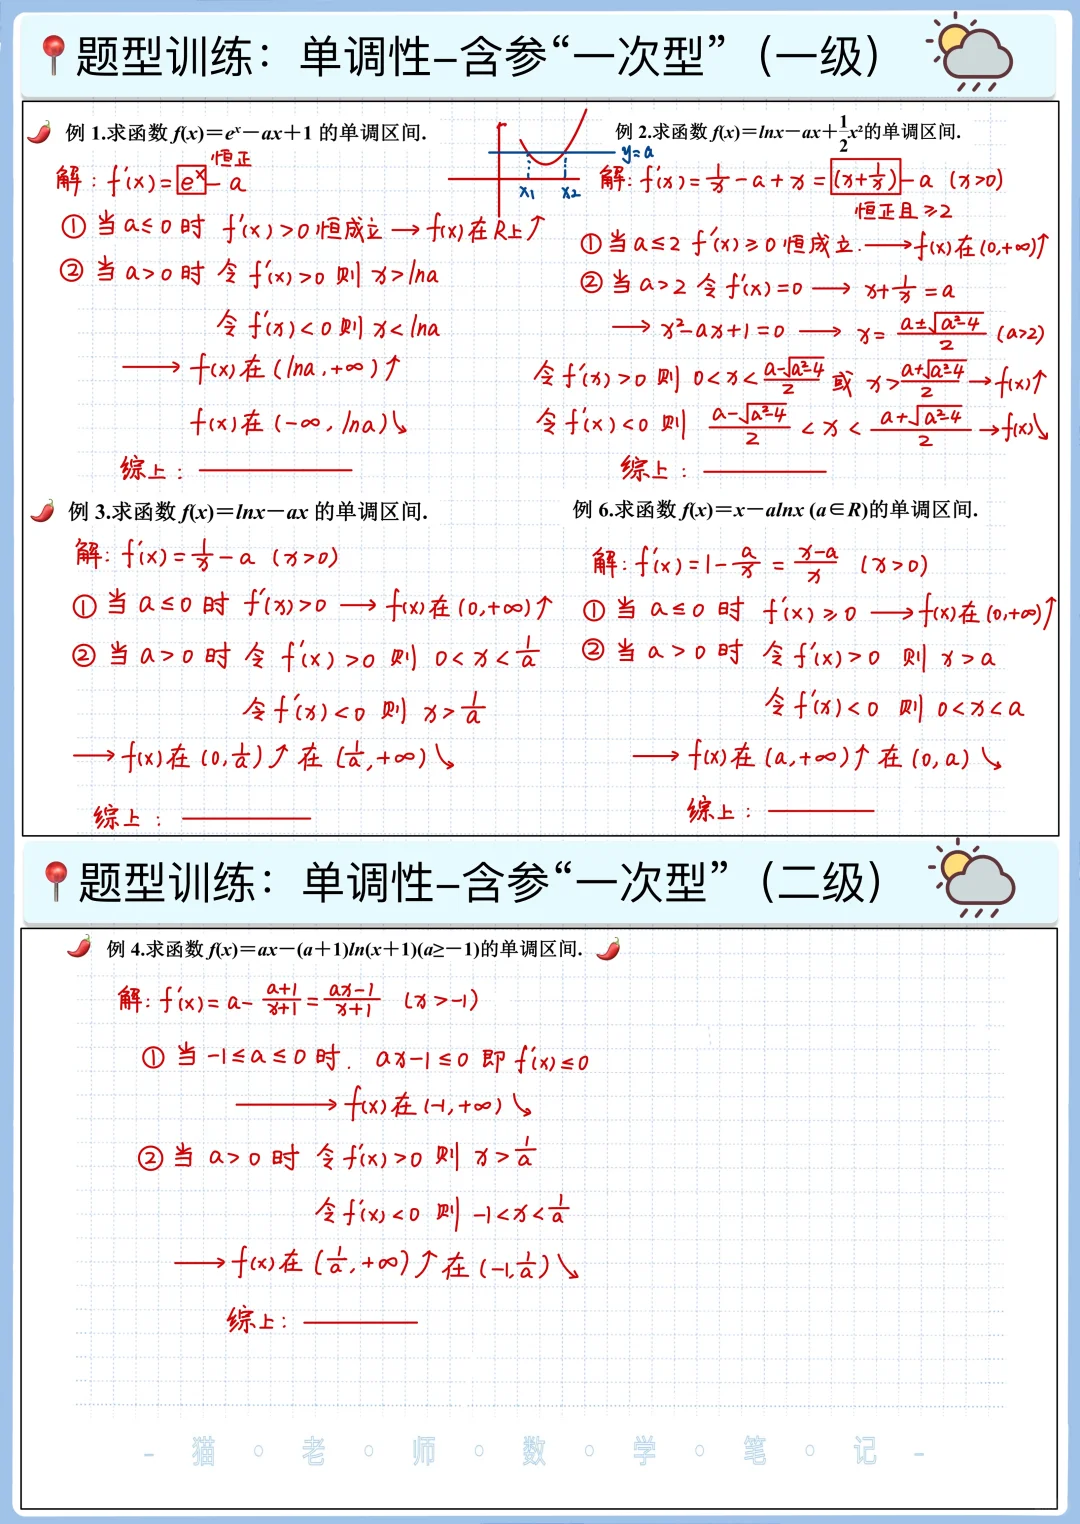 题型训练：单调性–含参“一次型”（一级）
例 1.求函数 f(x)＝eˣ－ax＋1 的单调区间.
恒正
解：f′(x)=eˣ-a
① 当 a≤0 时 f′(x)>0 恒成立 → f(x)在R上↑
② 当 a>0 时 令 f′(x)>0 则 x>lna
令 f′(x)<0 则 x<lna
→ f(x)在(lna,+∞)↑
f(x)在(-∞,lna)↘
综上：
y=a
x₁ x₂
例 2.求函数 f(x)＝lnx－ax＋1/2x²的单调区间.
解: f′(x)=1/x-a+x=(x+1/x)-a (x>0)
恒正且≥2
①当 a≤2 f′(x)≥0 恒成立. → f(x)在(0,+∞)↑
②当 a>2 令 f′(x)=0 → x+1/x=a
→ x²-ax+1=0 → x=(a±√(a²-4))/2 (a>2)
令 f′(x)>0 则 0<x<(a-√(a²-4))/2 或 x>(a+√(a²-4))/2 → f(x)↑
令 f′(x)<0 则 (a-√(a²-4))/2<x<(a+√(a²-4))/2 → f(x)↘
综上：
例 3.求函数 f(x)＝lnx－ax 的单调区间.
解: f′(x)=1/x-a (x>0)
① 当 a≤0 时 f′(x)>0 → f(x)在(0,+∞)↑
② 当 a>0 时 令 f′(x)>0 则 0<x<1/a
令 f′(x)<0 则 x>1/a
→ f(x)在(0,1/a)↑ 在(1/a,+∞)↘
综上：
例 6.求函数 f(x)＝x－alnx (a∈R)的单调区间.
解: f′(x)=1-a/x=(x-a)/x (x>0)
① 当 a≤0 时 f′(x)≥0 → f(x)在(0,+∞)↑
② 当 a>0 时 令 f′(x)>0 则 x>a
令 f′(x)<0 则 0<x<a
→ f(x)在(a,+∞)↑ 在(0,a)↘
综上：
题型训练：单调性–含参“一次型”（二级）
例 4.求函数 f(x)＝ax－(a＋1)ln(x＋1)(a≥－1)的单调区间.
解: f′(x)=a-(a+1)/(x+1)=(ax-1)/(x+1) (x>-1)
① 当 -1≤a≤0 时. ax-1≤0 即 f′(x)≤0
→ f(x)在(-1,+∞)↘
② 当 a>0 时 令 f′(x)>0 则 x>1/a
令 f′(x)<0 则 -1<x<1/a
→ f(x)在(1/a,+∞)↑在(-1,1/a)↘
综上：
- 猫 · 老 · 师 · 数 · 学 · 笔 · 记 -